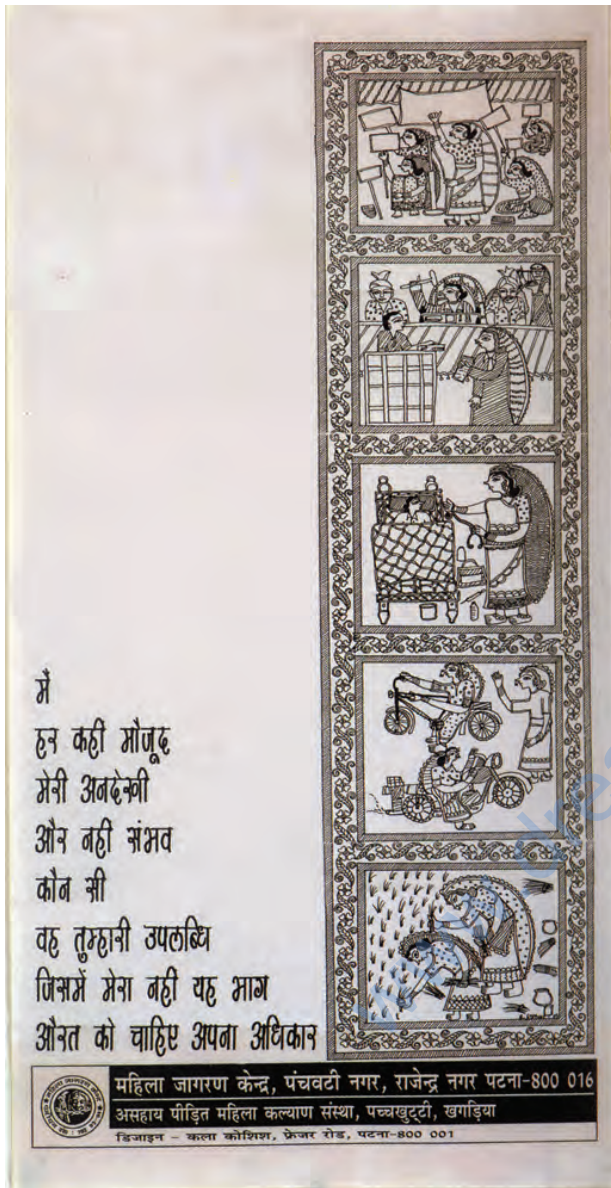 मैं
हर कहीं मौजूद
मेरी अनदेखी
और नहीं संभव
कौन सी
वह तुम्हारी उपलब्धि
जिसमें मेरा नहीं यह भाग
औरत को चाहिए अपना अधिकार
महिला जागरण केन्द्र, पंचवटी नगर, राजेन्द्र नगर पटना-800 016
असहाय पीड़ित महिला कल्याण संस्था, पच्चखुट्टी, खगड़िया
डिजाइन – कला कोशिश, फ्रेजर रोड, पटना-800 001